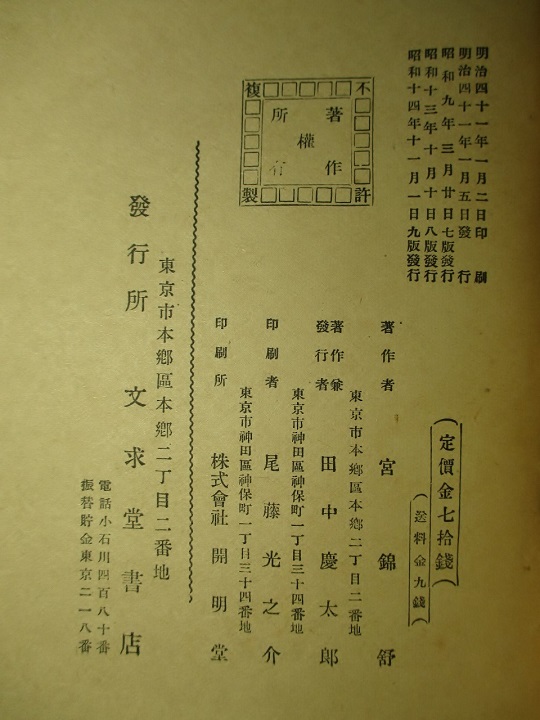 明治四十一年一月二日印刷
明治四十一年一月五日發行
昭和九年三月廿日七版發行
昭和十三年十月十日八版發行
昭和十四年十一月一日九版發行
不許複製
著作權所有
定價金七拾錢
送料金九錢
著作者 宮錦舒
東京市本鄉區本鄉二丁目二番地
著作兼發行者 田中慶太郎
東京市神田區神保町一丁目三十四番地
印刷者 尾藤光之介
東京市神田區神保町一丁目三十四番地
印刷所 株式會社 開明堂
東京市本鄉區本鄉二丁目二番地
發行所 文求堂書店
電話小石川四百八十番
振替貯金東京二一八番